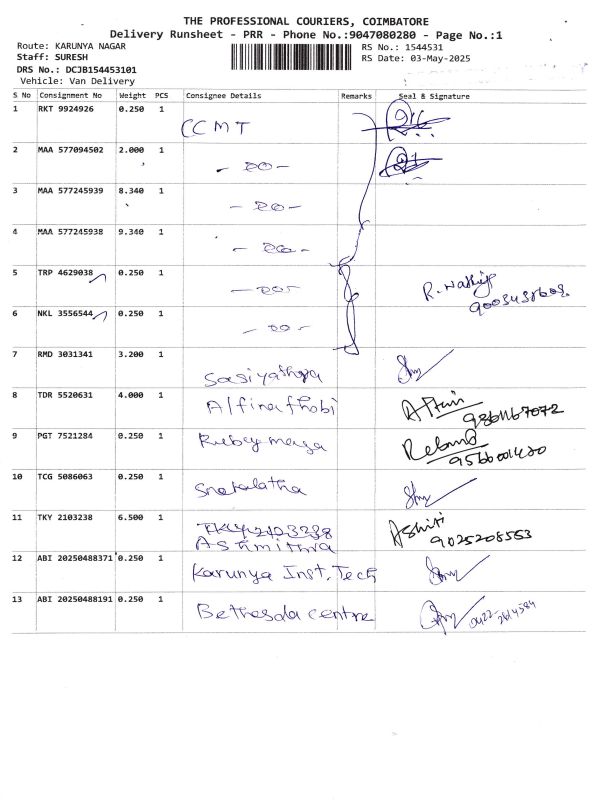 THE PROFESSIONAL COURIERS, COIMBATORE
Delivery Runsheet - PRR - Phone No.:9047080280 - Page No.:1
Route: KARUNYA NAGAR
Staff: SURESH
DRS No.: DCJB154453101
Vehicle: Van Delivery
RS No.: 1544531
RS Date: 03-May-2025
S No Consignment No Weight PCS Consignee Details Remarks Seal & Signature
1 RKT 9924926 0.250 1 CCMT
2 MAA 577094502 2.000 1 - DO -
3 MAA 577245939 8.340 1 - DO -
4 MAA 577245938 9.340 1 - DO -
5 TRP 4629038 0.250 1 - DO -
6 NKL 3556544 0.250 1 - DO -
7 RMD 3031341 3.200 1
8 TDR 5520631 4.000 1 Alfina
9 PGT 7521284 0.250 1 9566001420
10 TCG 5086063 0.250 1 Snekalatha
11 TKY 2103238 6.500 1 TKY 2103238
Ashmithra 9025208553
12 ABI 20250488371 0.250 1 Karunya Inst. Tech
13 ABI 20250488191 0.250 1 Bethesda centre